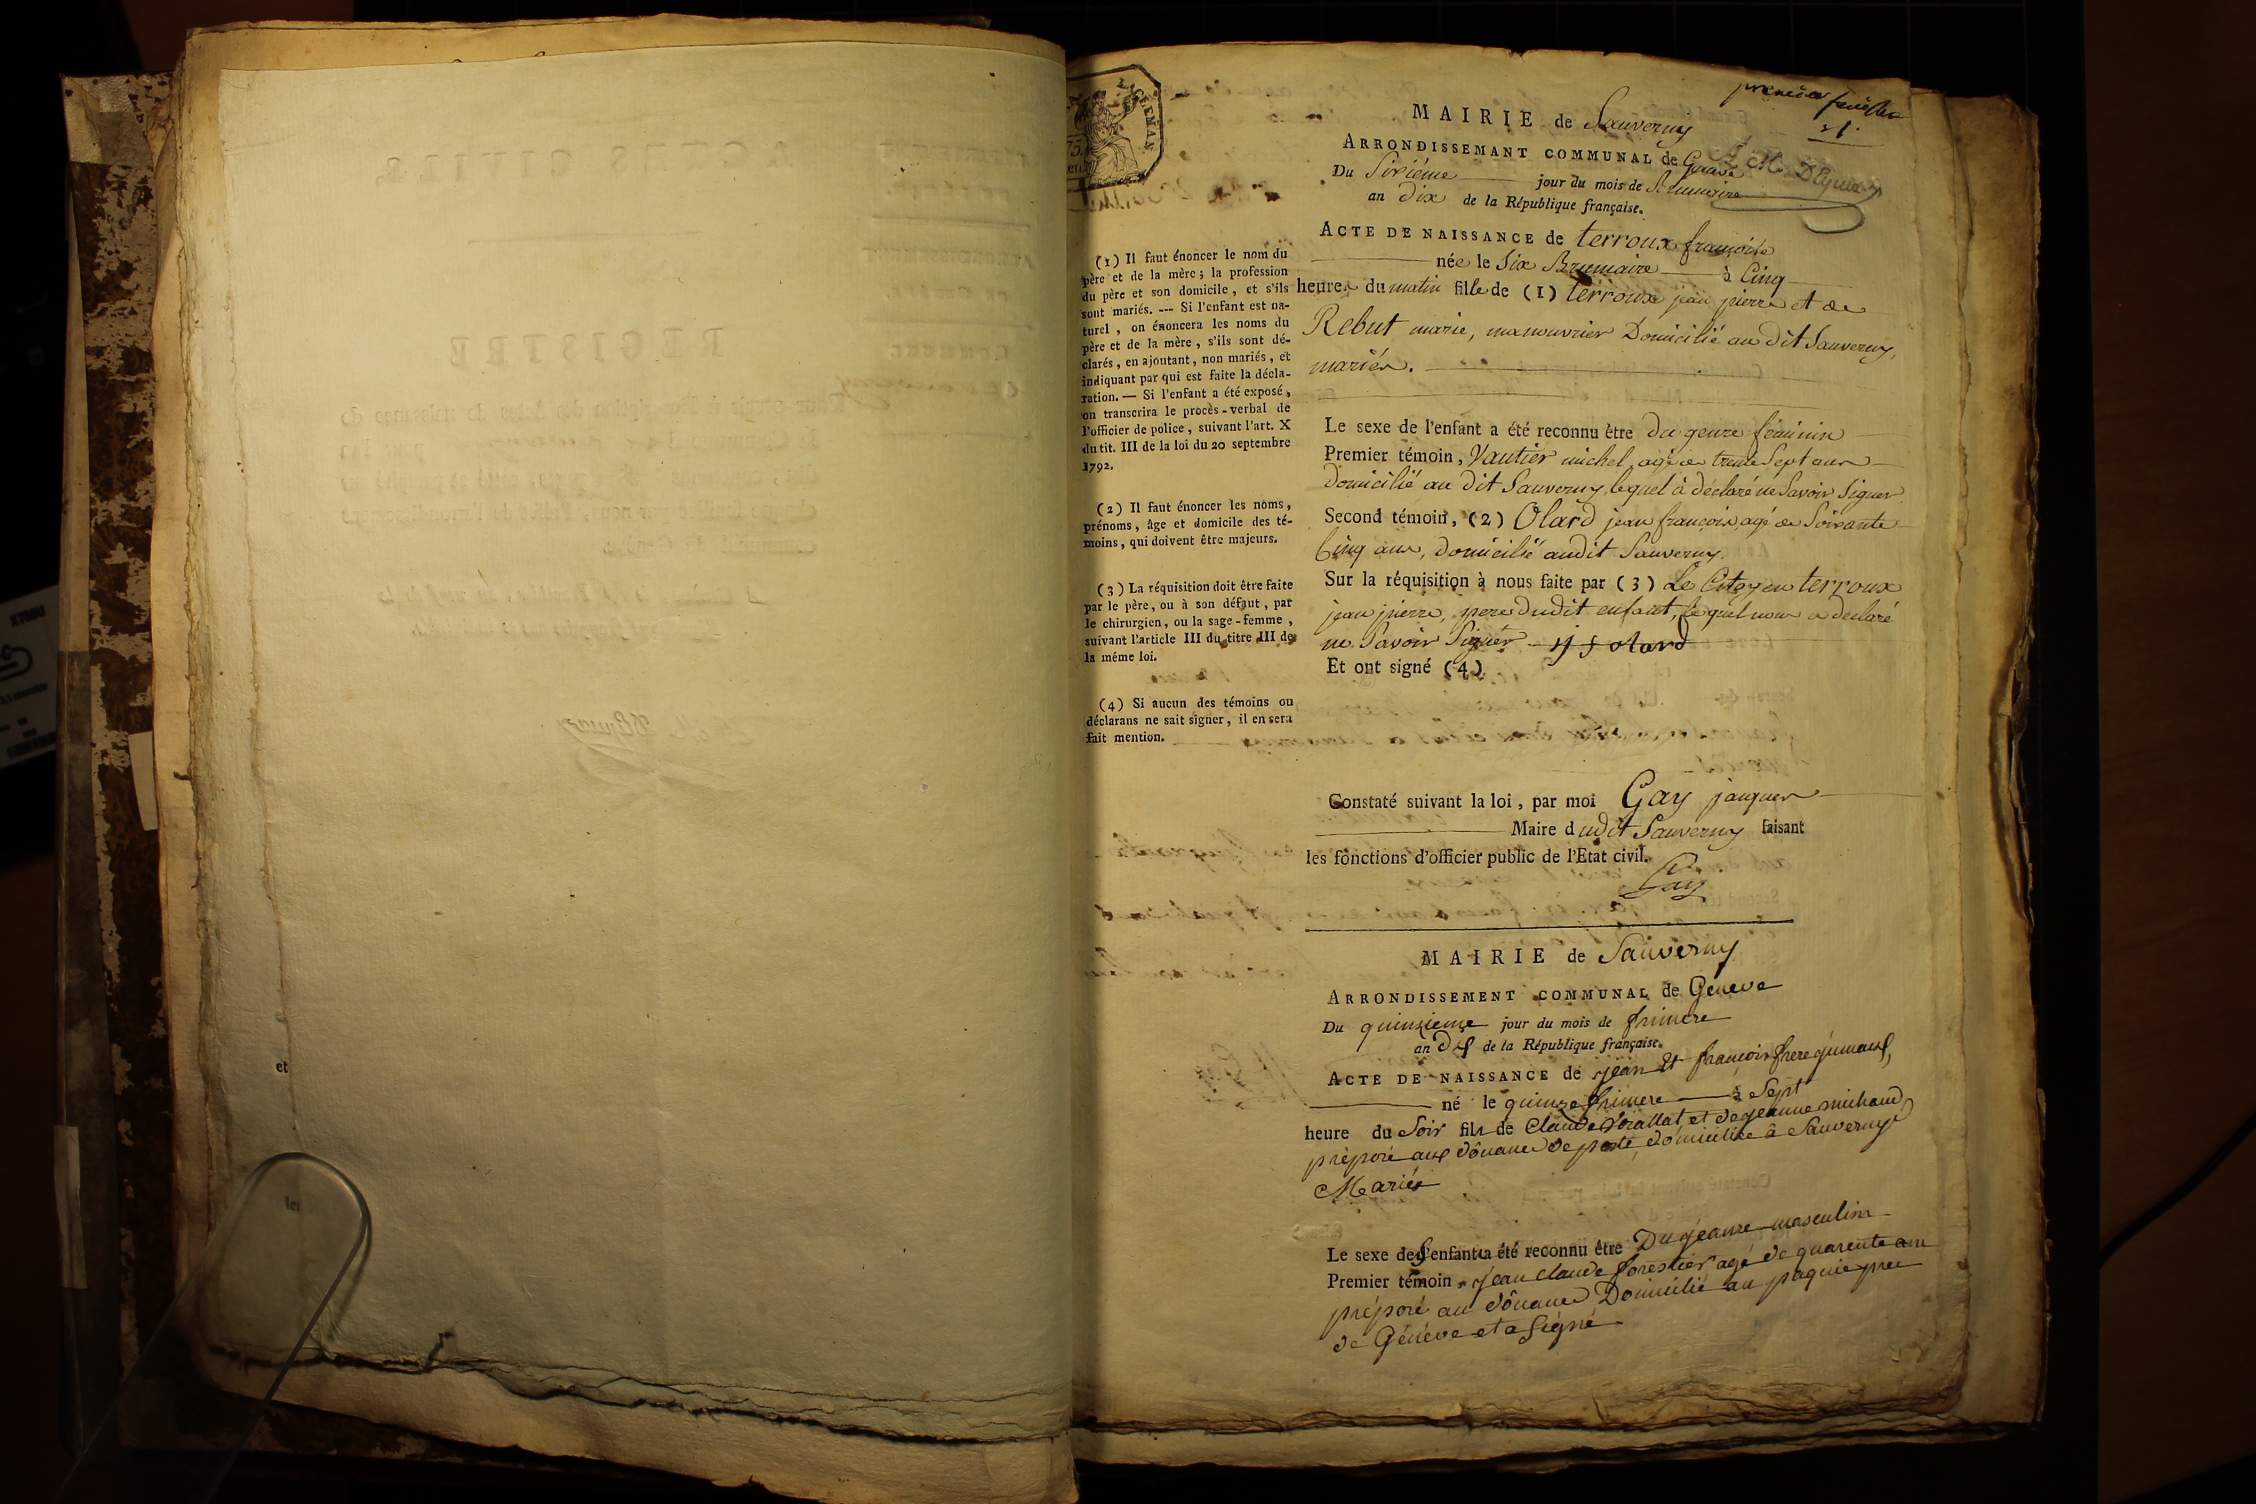 premier feuillet
1.
MAIRIE de Sauverny
ARRONDISSEMANT COMMUNAL de Geneve
Du Sixiéme jour du mois de Brumaire
an dix de la République française.
ACTE DE NAISSANCE de terroux françoise
née le Six Brumaire à Cinq
heures du matin fille de (1) terroux jean pierre et de
Rebut marie, manouvrier Domicilié au dit Sauverny,
mariés.
Le sexe de l'enfant a été reconnu être du genre féminin
Premier témoin, Vautier michel agé de trente Sept ans
domicilié au dit Sauverny, lequel à déclaré ne Savoir Signer
Second témoin, (2) Olard jean françois, agé de Soixante
Cinq ans, domicilié audit Sauverny.
Sur la réquisition à nous faite par (3) Le Citoyen terroux
jean pierre, pere dudit enfant, lequel nous a declaré
ne Savoir Signér jj f olard
Et ont signé (4)
Constaté suivant la loi, par moi Gay jaques
Maire dudit Sauverny faisant
les fonctions d'officier public de l'Etat civil.
Gay
(1) Il faut énoncer le nom du
père et de la mère; la profession
du père et son domicile, et s'ils
sont mariés. --- Si l'enfant est na-
turel, on énoncera les noms du
père et de la mère, s'ils sont dé-
clarés, en ajoutant, non mariés, et
indiquant par qui est faite la décla-
ration. — Si l'enfant a été exposé,
on transcrira le procès-verbal de
l'officier de police, suivant l'art. X
du tit. III de la loi du 20 septembre
1792.
(2) Il faut énoncer les noms,
prénoms, âge et domicile des té-
moins, qui doivent être majeurs.
(3) La réquisition doit être faite
par le père, ou à son défaut, par
le chirurgien, ou la sage-femme,
suivant l'article III du titre III de
la même loi.
(4) Si aucun des témoins ou
déclarans ne sait signer, il en sera
fait mention.
MAIRIE de Sauverny
ARRONDISSEMENT COMMUNAL de Géneve
Du quinzieme jour du mois de frimere
an dix de la République française.
ACTE DE NAISSANCE de jean Et françois frere jumaux,
né le quinze frimere à Sept
heure du Soir fils de Claude et de jeanne michaud
préposé aux dôuane de poste, domicilie â Sauverny
Mariés
Le sexe des enfants a été reconnu être Du jeanre masculin
Premier témoin, jean claude forestier agé de quarente an
préposé au dôuane Domicilié au paquie pres
de Géneve et a Signé
et